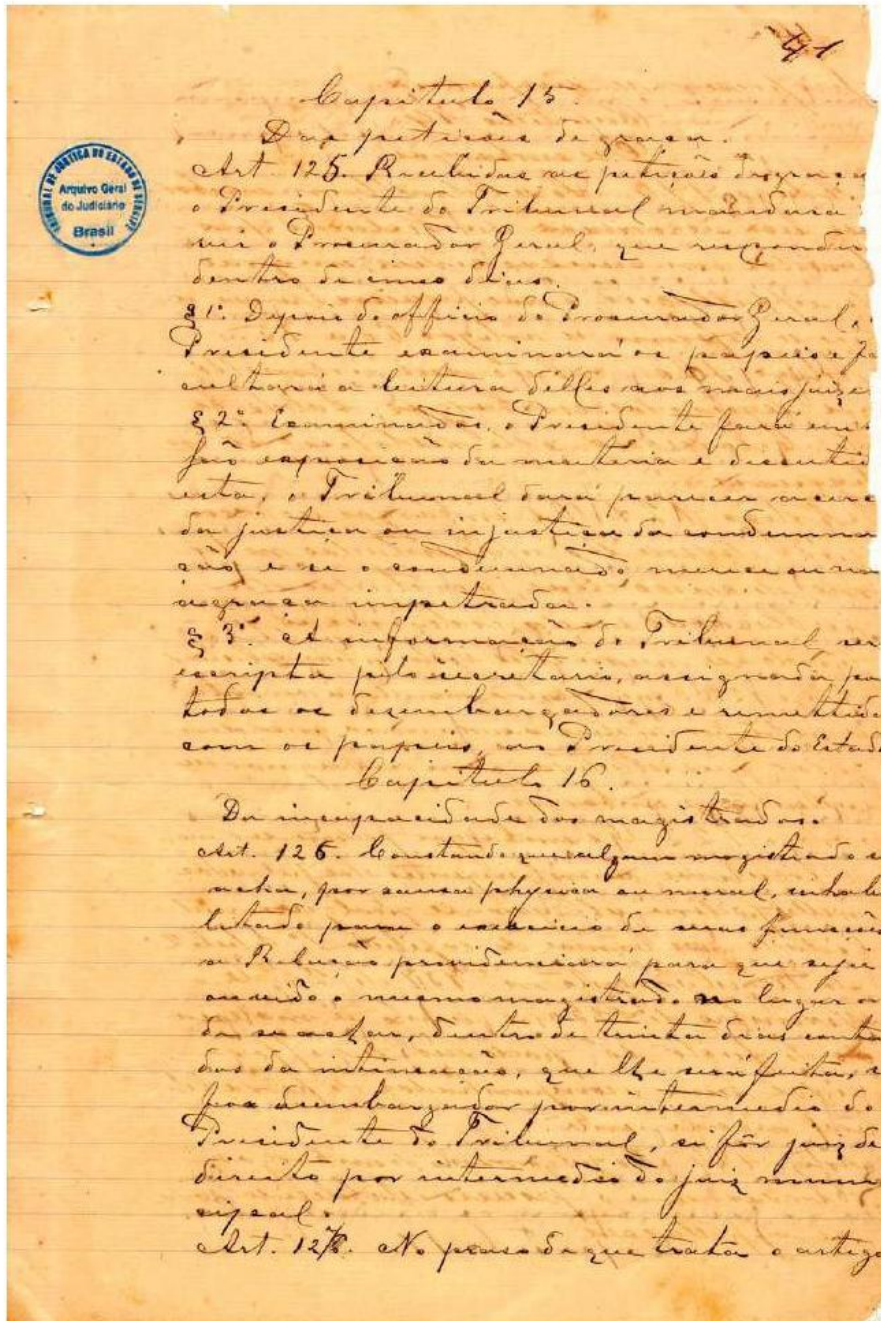 41
Capitulo 15.
Das petisões de graça.
Art. 125. Recebidas as petições de graça
o Presidente do Tribunal mandará
vir o Procurador Geral, que responder
dentro de cinco dias.
§ 1º. Depois do officio do Procurador Geral,
Presidente examinará os papeis e fa
cultará a leitura delles aos mais juize
§ 2º. Examinados, o Presidente fará em s
são exposição da materia e descutid
esta, o Tribunal dará parecer acerc
da justiça ou injustiça da condemna
ção, e se o condemnado, merece ou nã
a graça impetrada.
§ 3º. A informação do Tribunal, ser
escripta pelo secretario, assignada po
todos os dezembargadores e remettida
com os papeis, ao Presidente do Estad
Capitulo 16.
Da incapacidade dos magistrados.
Art. 126. Constando que algum magistrado s
acha, por causa physica ou moral, inhabi
litado para o exercicio de suas funcçõe
a Relação providenciará para que seja
ouvido o mesmo magistrado no lugar o
de se achar, dentro de trinta dias conta
dos da intimação, que lhe será feita, s
for desembargador por intermedio do
Presidente do Tribunal, si fôr juiz de
direito por intermedio do juiz muni
cipal.
Art. 127. No praso de que trata o artigo
TRIBUNAL DE JUSTIÇA DO ESTADO DE SERGIPE
Arquivo Geral
do Judiciário
Brasil